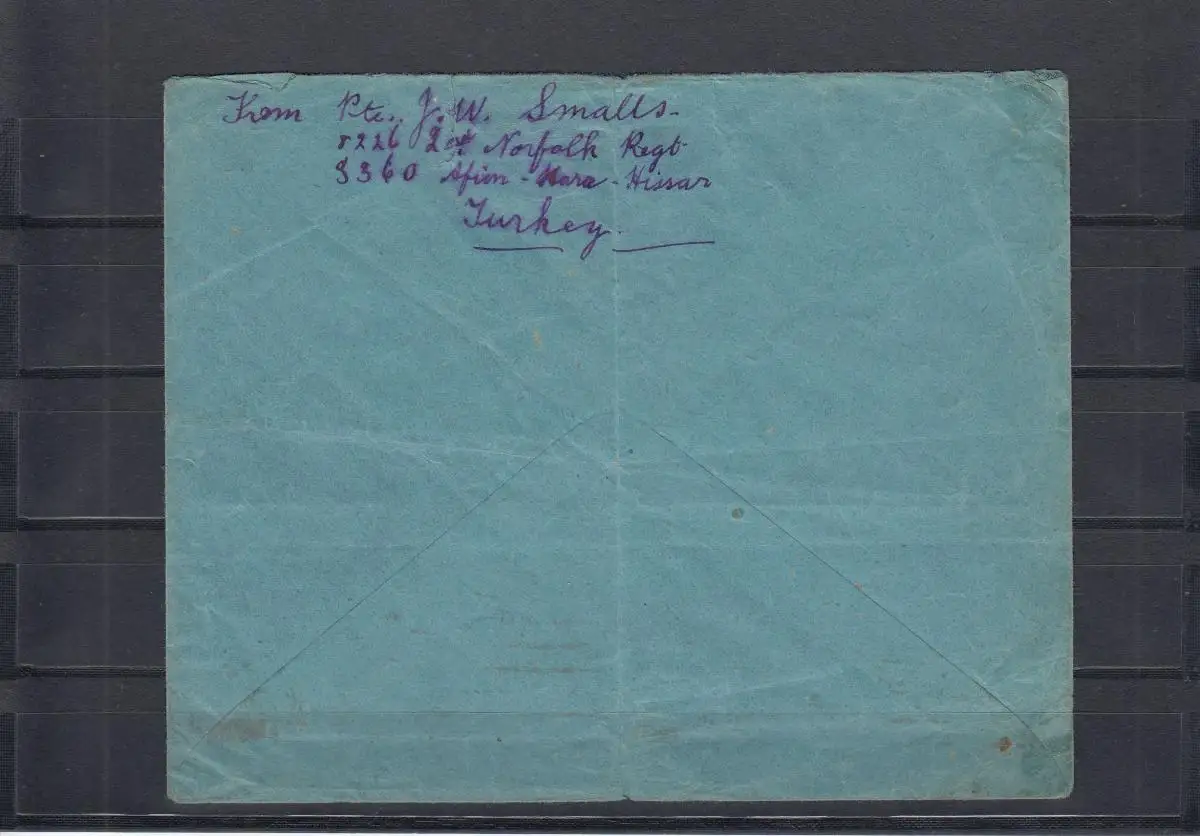 From Pte. J. W. Smalls.
8226 2nd Norfolk Regt.
3360 Afion-Kara-Hissar
Turkey.